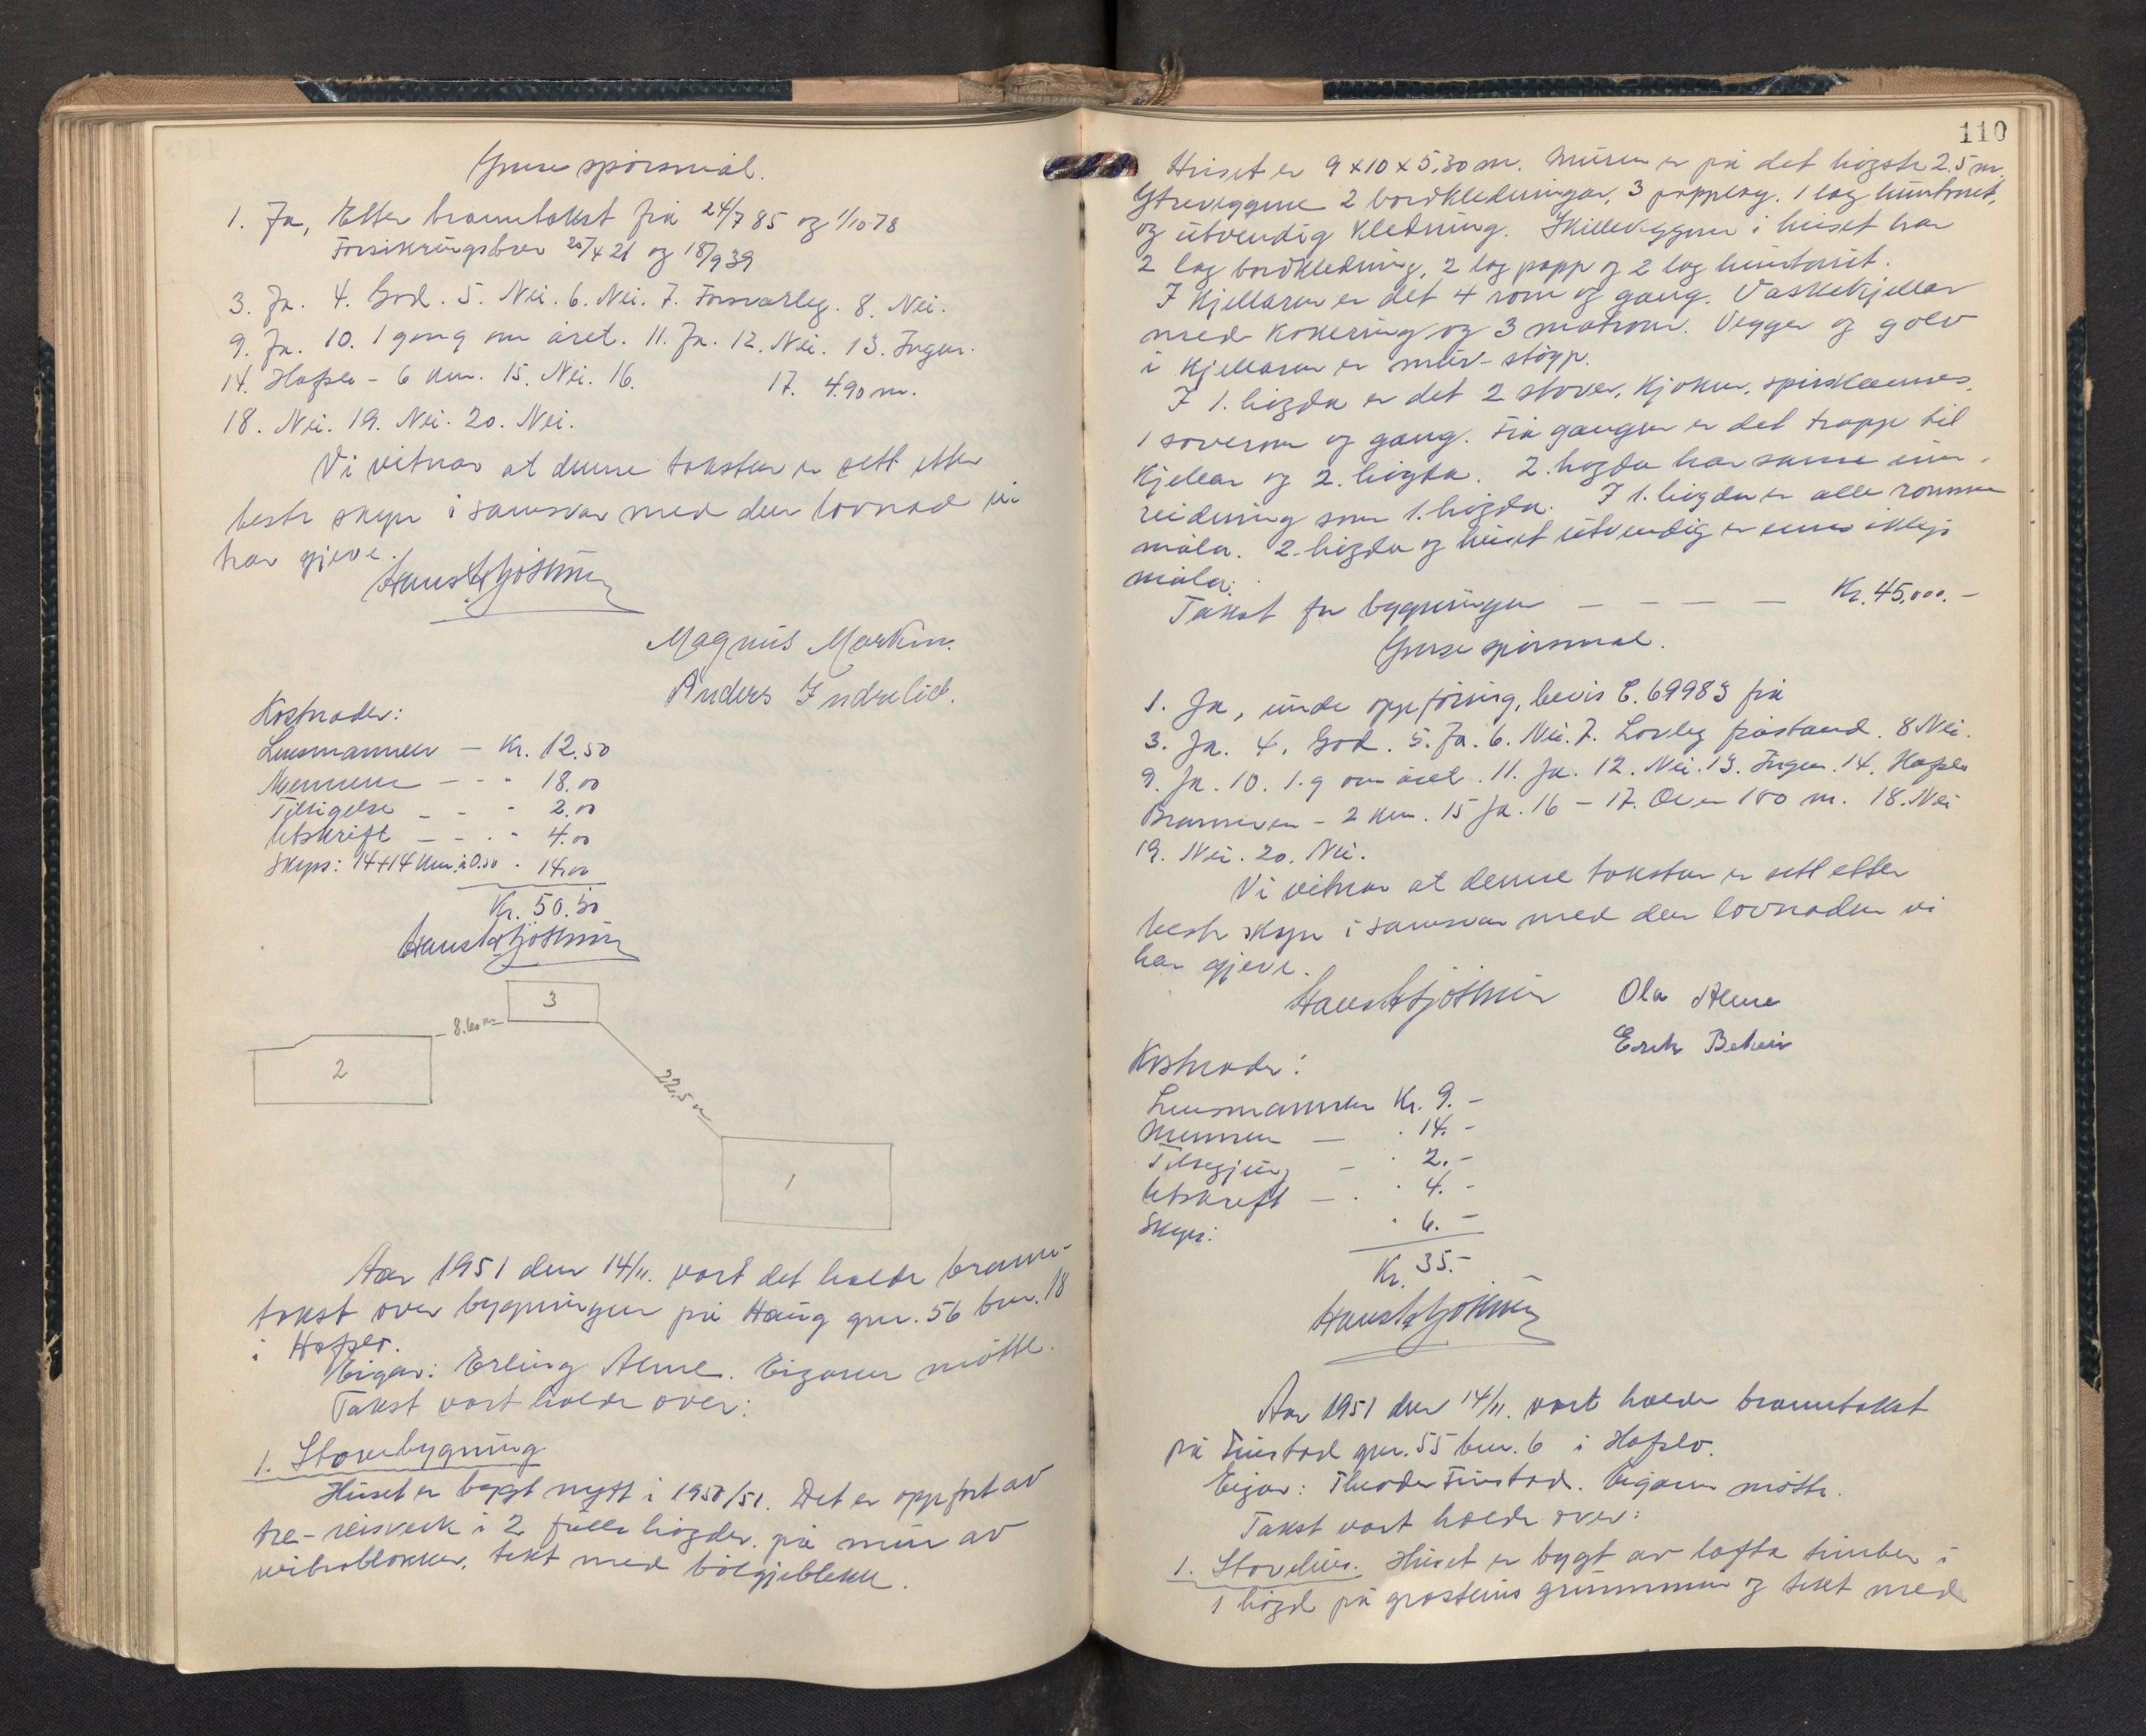 Ymse spörsmål.
1. Ja, Etter branntakst frå 24/7 85 og 1/10 78
Forsikringsbrev 20/4 21 og 18/9 39
3. Ja. 4. God. 5. Nei. 6. Nei. 7. Forsvarleg. 8. Nei.
9. Ja. 10. 1 gong om året. 11. Ja. 12. Nei. 13. Ingen.
14. Hafslo - 6 km. 15. Nei. 16. 17. 4.90 m.
18. Nei. 19. Nei. 20. Nei.
Vi vitnar at denne taksten er sett etter
beste skyn i samsvar med den lovnad vi
har gjeve.
Magnus Markun.
Anders Indrelid.
Kostnader:
Lensmannen - Kr. 12.50
Mennene - - " 18.00
Tilsigelse - - " 2.00
Utskrift - - " 4.00
Skyss: 14+14 km. à 0.50 " 14.00
Kr. 50.50
3
8.60 m
2
22.5 m
1
Aar 1951 den 14/11. vart det halde brann-
takst over bygningen på Haug gnr. 56 bnr. 18
i Hafslo.
Eigar: Erling Alme. Eigaren møtte.
Takst vart halde over:
1. Stovebygning
Huset er bygt nytt i 1950/51. Det er oppfört av
tre-reisverk i 2 fulle högder på mur av
vibroblokker, tekt med bölgjeblekk.
110
Huset er 9 x 10 x 5.30 m. Muren er på det högste 2,5 m.
Ytreveggene 2 bordkledningar, 3 papplag, 1 lag huntonit,
og utvendig kledning. Skilleveggene i huset har
2 lag bordkledning, 2 lag papp og 2 lag huntonit.
I kjellaren er det 4 rom og gang. Vaskekjellar
med kokering og 3 matrom. Vegger og golv
i kjellaren er mur-stöyp.
I 1. högda er det 2 stover, kjøken, spiskammer,
1 soverom og gang. Frå gangen er det trapp til
kjellar og 2. högda. 2. högda har same inn-
reidning som 1. högda. I 1. högda er alle romma
måla. 2. högda og huset utvendig er enno ikkje
måla.
Takst for bygningen - - - - Kr. 45,000.-
Ymse spörsmål.
1. Ja, under oppföring, bevis E. 69983 frå
3. Ja. 4. God. 5. Ja. 6. Nei. 7. Lovleg fråstand. 8 Nei.
9. Ja. 10. 1. g om året. 11. Ja. 12. Nei. 13. Ingen. 14. Hafslo
- 2 km. 15 Ja. 16 - 17. Over 100 m. 18. Nei
19. Nei. 20. Nei.
Vi vitnar at denne taksten er sett etter
beste skyn i samsvar med den lovnaden vi
har gjeve.
Ola Alme
Erik
Kostnader:
Lensmannen Kr. 9.-
Mennene - " 14.-
Tilsegjing - " 2.-
Utskrift - " 4.-
Skyss: " 6.-
Kr. 35.-
Aar 1951 den 14/11. vart halde branntakst
på Fuistad gnr. 55 bnr. 6 i Hafslo.
Eigar: Theodor Fuistad. Eigaren møtte.
Takst vart halde over:
1. Stovehus. Huset er bygt av lafta timber i
1 högd på gråsteins grunnmur og tekt med